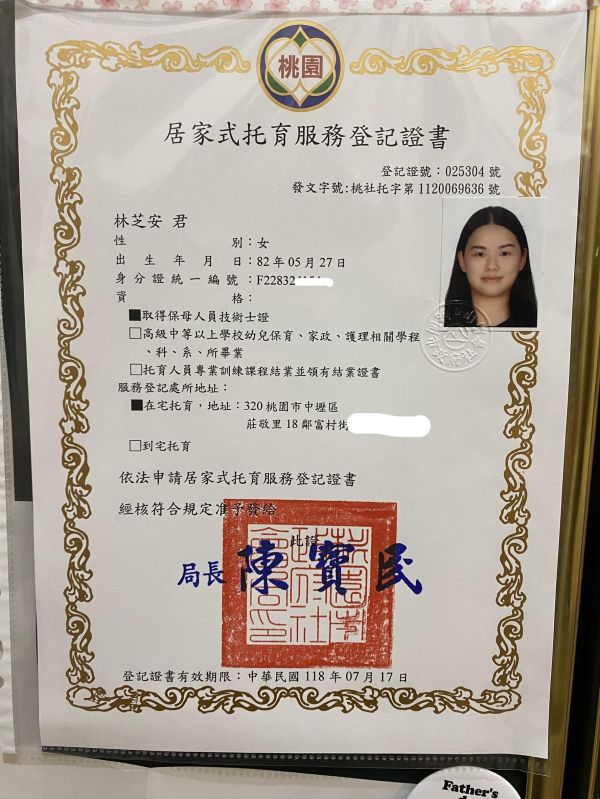 桃園
居家式托育服務登記證書
登記證號：025304 號
發文字號:桃社托字第 1120069636 號
林芝安 君
性別：女
出生年月日：82 年 05 月 27 日
身分證統一編號：F22832
資格：
■取得保母人員技術士證
□高級中等以上學校幼兒保育、家政、護理相關學程
、科、系、所畢業
□托育人員專業訓練課程結業並領有結業證書
服務登記處所地址：
■在宅托育，地址：320 桃園市中壢區
莊敬里 18 鄰富村街
□到宅托育
依法申請居家式托育服務登記證書
經核符合規定准予發給
此證
局長 陳寶民
登記證書有效期限：中華民國 118 年 07 月 17 日
Father's